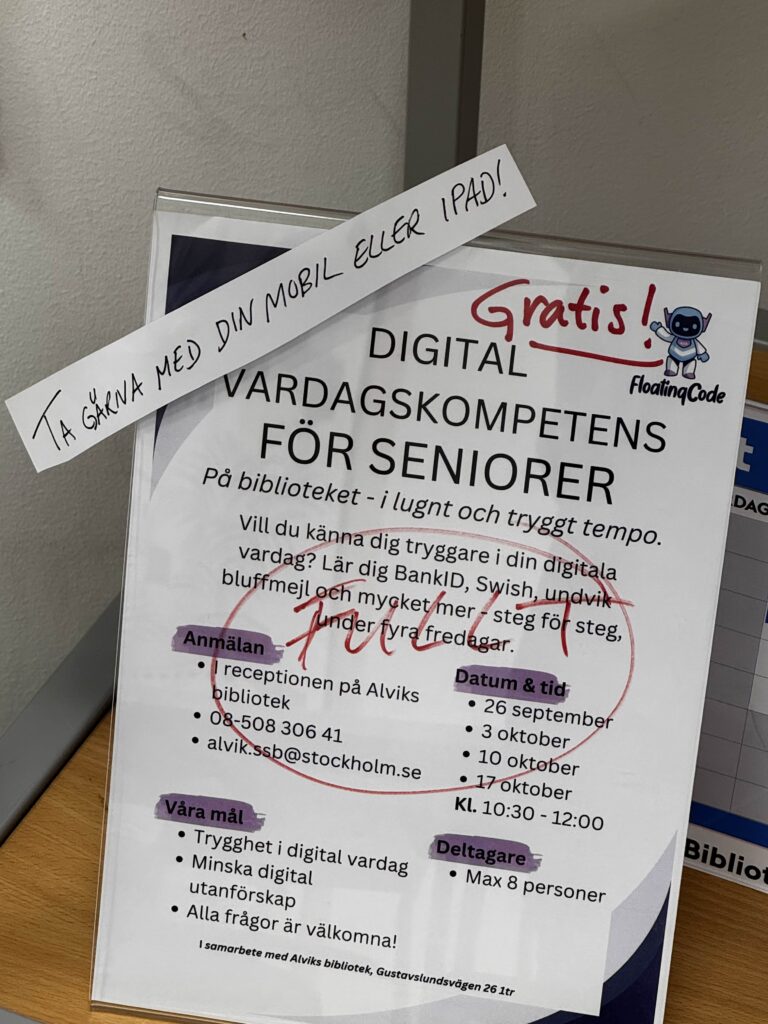 TA GÄRNA MED DIN MOBIL ELLER IPAD!
Gratis!
FloatingCode
DIGITAL
VARDAGSKOMPETENS
FÖR SENIORER
På biblioteket - i lugnt och tryggt tempo.
Vill du känna dig tryggare i din digitala
vardag? Lär dig BankID, Swish, undvik
bluffmejl och mycket mer - steg för steg,
under fyra fredagar.
FULLT
Anmälan
• I receptionen på Alviks
bibliotek
• 08-508 306 41
• alvik.ssb@stockholm.se
Datum & tid
• 26 september
• 3 oktober
• 10 oktober
• 17 oktober
Kl. 10:30 - 12:00
Våra mål
• Trygghet i digital vardag
• Minska digital
utanförskap
• Alla frågor är välkomna!
Deltagare
• Max 8 personer
I samarbete med Alviks bibliotek, Gustavslundsvägen 26 1tr
t
DAG
Bibliot